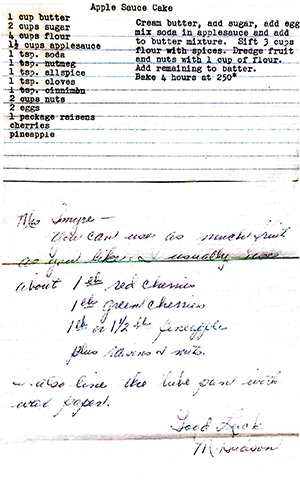 Apple Sauce Cake
1 cup butter
2 cups sugar
4 cups flour
1½ cups applesauce
1 tsp. soda
1 tsp. nutmeg
1 tsp. allspice
1 tsp. cloves
1 tsp. cinnimen
2 cups nuts
2 eggs
1 package raisens
cherries
pineapple
Cream butter, add sugar, add egg
mix soda in applesauce and add
to butter mixture. Sift 3 cups
flour with spices. Dredge fruit
and nuts with 1 cup of flour.
Add remaining to batter.
Bake 4 hours at 250°
Mrs
You can use as much fruit
as you like. I usually use
about 1 lb red cherries
1 lb green cherries
1 lb or 1½ lb pineapple
plus raisens & nuts.
I also line the tube pan with
wax paper.
Good Luck